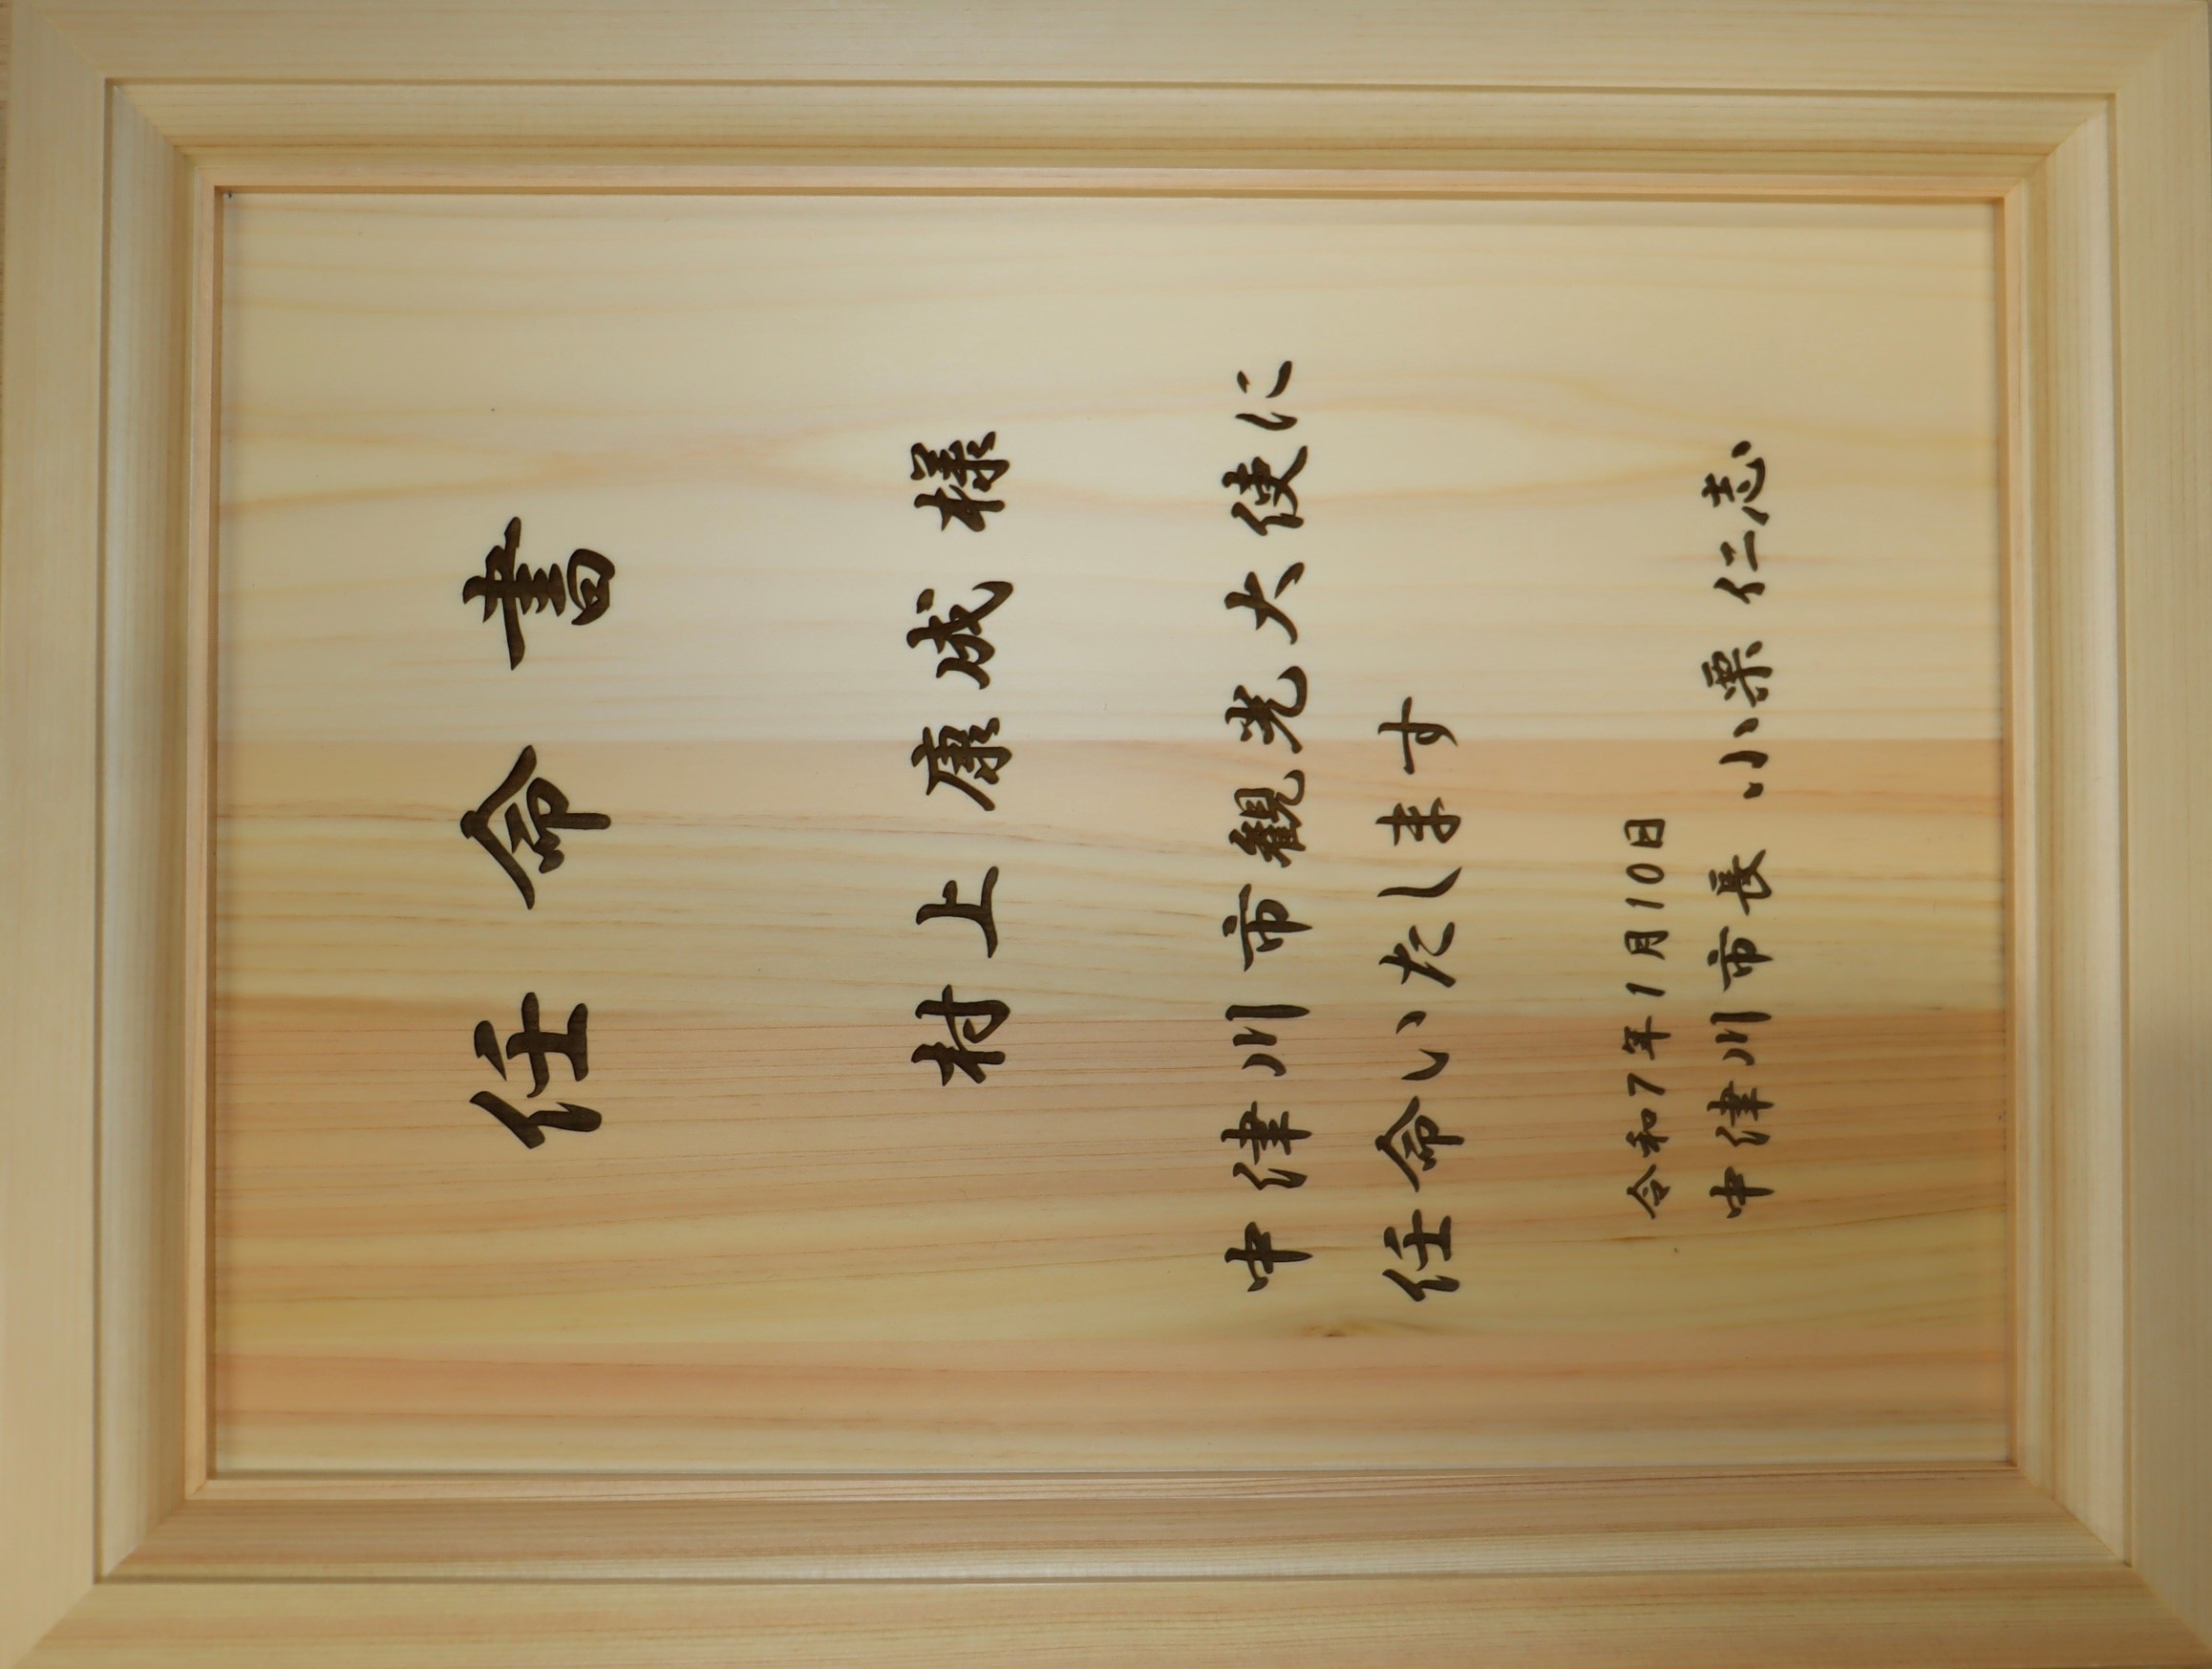 任命書
村上康成様
中津川市観光大使に
任命いたします
令和7年1月10日
中津川市長 小栗 仁志